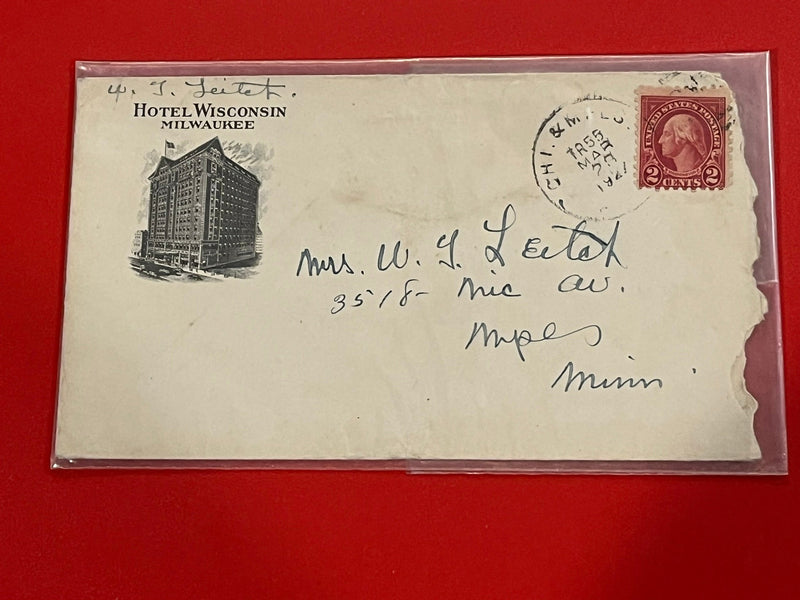 W. J. Leitch.
HOTEL WISCONSIN
MILWAUKEE
CHI. & MPLS.
TR 55
MAR
1927
UNITED STATES POSTAGE
2 CENTS 2
Mrs. W. J. Leitch
3518- Nic av.
Mpls
Minn